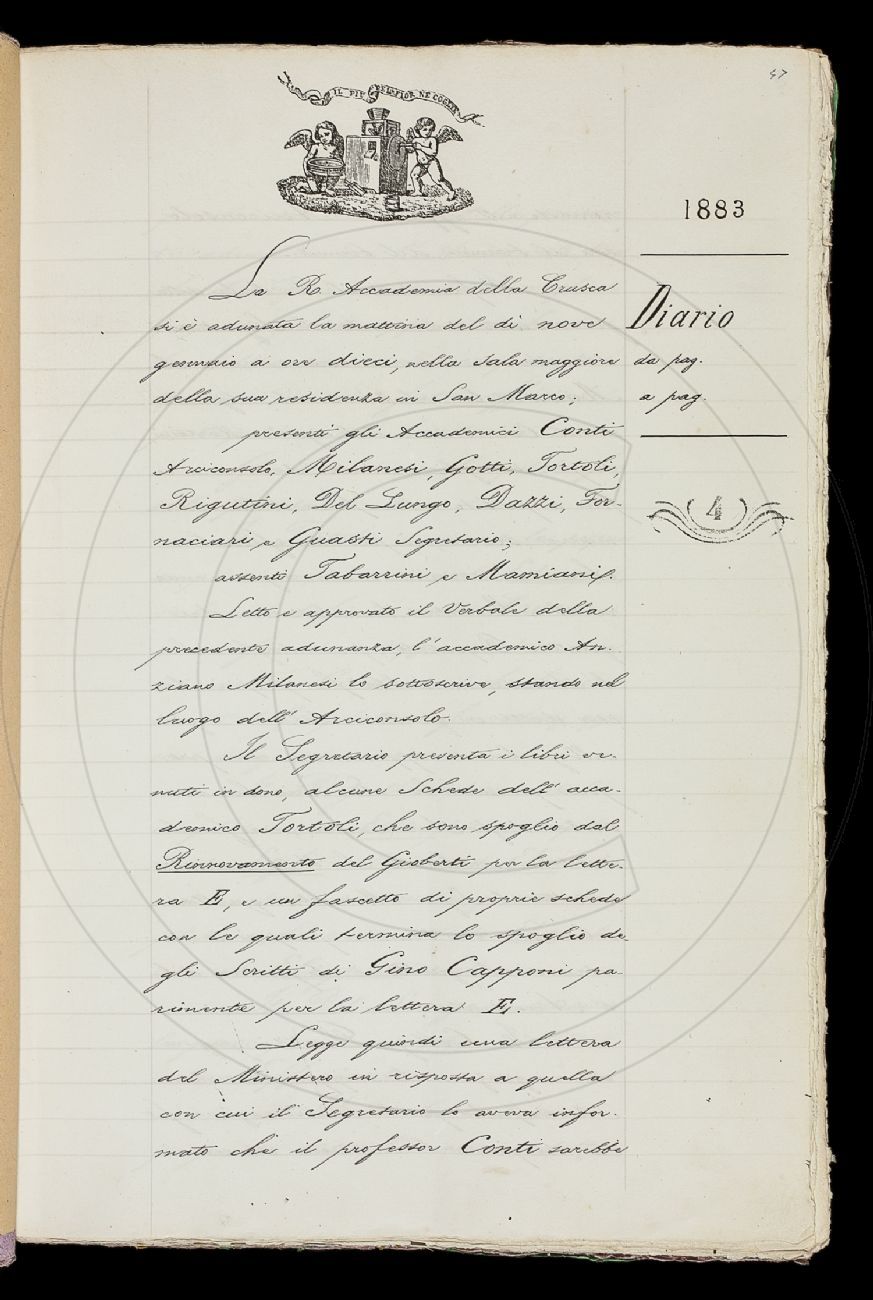 IL PIÙ BEL FIOR NE COGLIE
47
1883
Diario
da pag.
a pag.
4
La R. Accademia della Crusca
si è adunata la mattina del dì nove
gennaio a ore dieci, nella Sala maggiore
della sua residenza in San Marco;
presenti gli Accademici Conti
Arciconsolo, Milanesi, Gotti, Tortoli,
Rigutini, Del Lungo, Dazzi, For-
naciari, e Guasti Segretario;
assenti Tabarrini e Mamiani.
Letto e approvato il Verbale della
precedente adunanza, l'accademico An-
ziano Milanesi lo sottoscrive, stando nel
luogo dell'Arciconsolo.
Il Segretario presenta i libri ve-
nuti in dono, alcune Schede dell'acca-
demico Tortoli, che sono spoglio dal
Rinnovamento del Gioberti per la lette-
ra E, e un fascetto di proprie schede
con le quali termina lo spoglio de-
gli Scritti di Gino Capponi pa-
rimente per la lettera E.
Legge quindi una lettera
del Ministero in risposta a quella
con cui il Segretario lo aveva infor-
mato che il professor Conti sarebbe